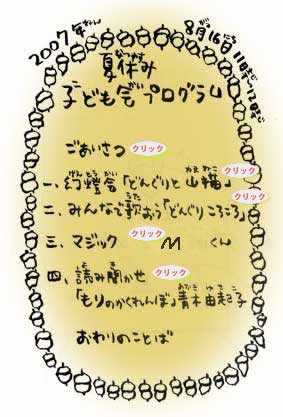 2007年ねん
8月がつ16日にち11時じ~12時じ
夏休みなつやす
子ども会プログラム
ごあいさつ クリック
一、幻燈会「どんぐりと山猫」 クリック
二、みんなで歌おう「どんぐりころころ」 クリック
三、マジック M くん クリック
四、読み聞かせ クリック
「もりのかくれんぼ」青木由起子
おわりのことば